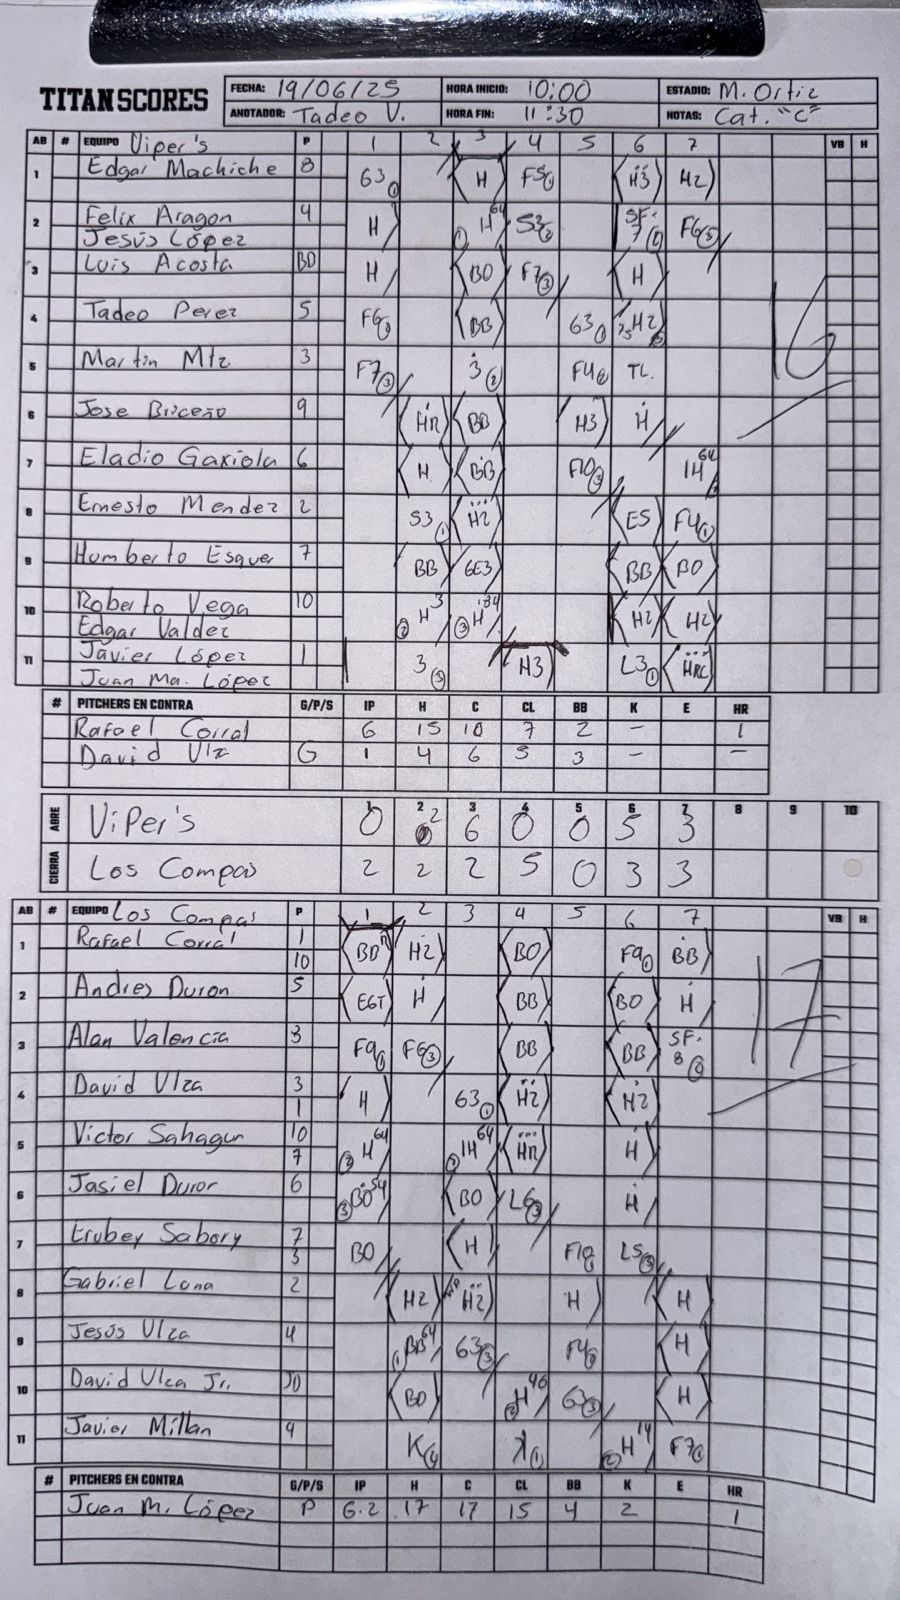 TITAN SCORES
FECHA: 19/06/25 HORA INICIO: 10:00 ESTADIO: M. Ortiz
ANOTADOR: Tadeo V. HORA FIN: 11:30 NOTAS: Cat. "C"
AB # EQUIPO Viper's P 1 2 3 4 5 6 7 VB H
1 Edgar Machiche 8 63 1 H F5 1 H3 H2
2 Felix Aragon 4 H 1 H 64 S3 2 SF. 7 2 F6 3
Jesús López
3 Luis Acosta BD H BO F7 3 H
4 Tadeo Perez 5 F6 2 BB 63 1 H2
5 Martin Mtz 3 F7 3 3 2 F4 2 TL.
6 Jose Briceño 9 HR BB H3 H
7 Eladio Gaxiola 6 H BB F10 3 1H 64
8 Ernesto Mendez 2 53 1 H2 E5 F4 1
9 Humberto Esquer 7 BB 6E3 BB BO
10 Roberto Vega 10 2 H 3 3 H 84 H2 H2
Edgar Valdez
11 Javier López 1 3 3 H3 L3 1 HRC
Juan Ma. López
# PITCHERS EN CONTRA G/P/S IP H C CL BB K E HR
Rafael Corral 6 15 10 7 2 - 1
David Ulza G 1 4 6 5 3 - -
1 2 3 4 5 6 7 8 9 10
ABRE Viper's 0 2 6 0 0 5 3
CIERRA Los Compas 2 2 2 5 0 3 3
16
AB # EQUIPO Los Compas P 1 2 3 4 5 6 7 VB H
1 Rafael Corral 1 10 BD H2 BO F9 1 BB
2 Andres Duron 5 E6T H BB BO H
3 Alan Valencia 8 F9 1 F6 3 BB BB SF. 8 2
4 David Ulza 3 1 H 63 1 H2 H2
5 Victor Sahagun 10 7 2 H 64 2 1H 64 HR H
6 Jasiel Duror 6 3 BO 54 BO L6 3 H
7 Erubey Sabory 7 3 BO H F10 1 L5 3
8 Gabriel Lona 2 H2 H2 H H
9 Jesús Ulza 4 1 BB 64 63 3 F4 2 H
10 David Ulza Jr. 10 BO 2 H 46 63 3 H
11 Javier Millan 9 K 2 K 1 2 H 14 F7 1
17
# PITCHERS EN CONTRA G/P/S IP H C CL BB K E HR
Juan M. López P 6.2 17 17 15 4 2 1